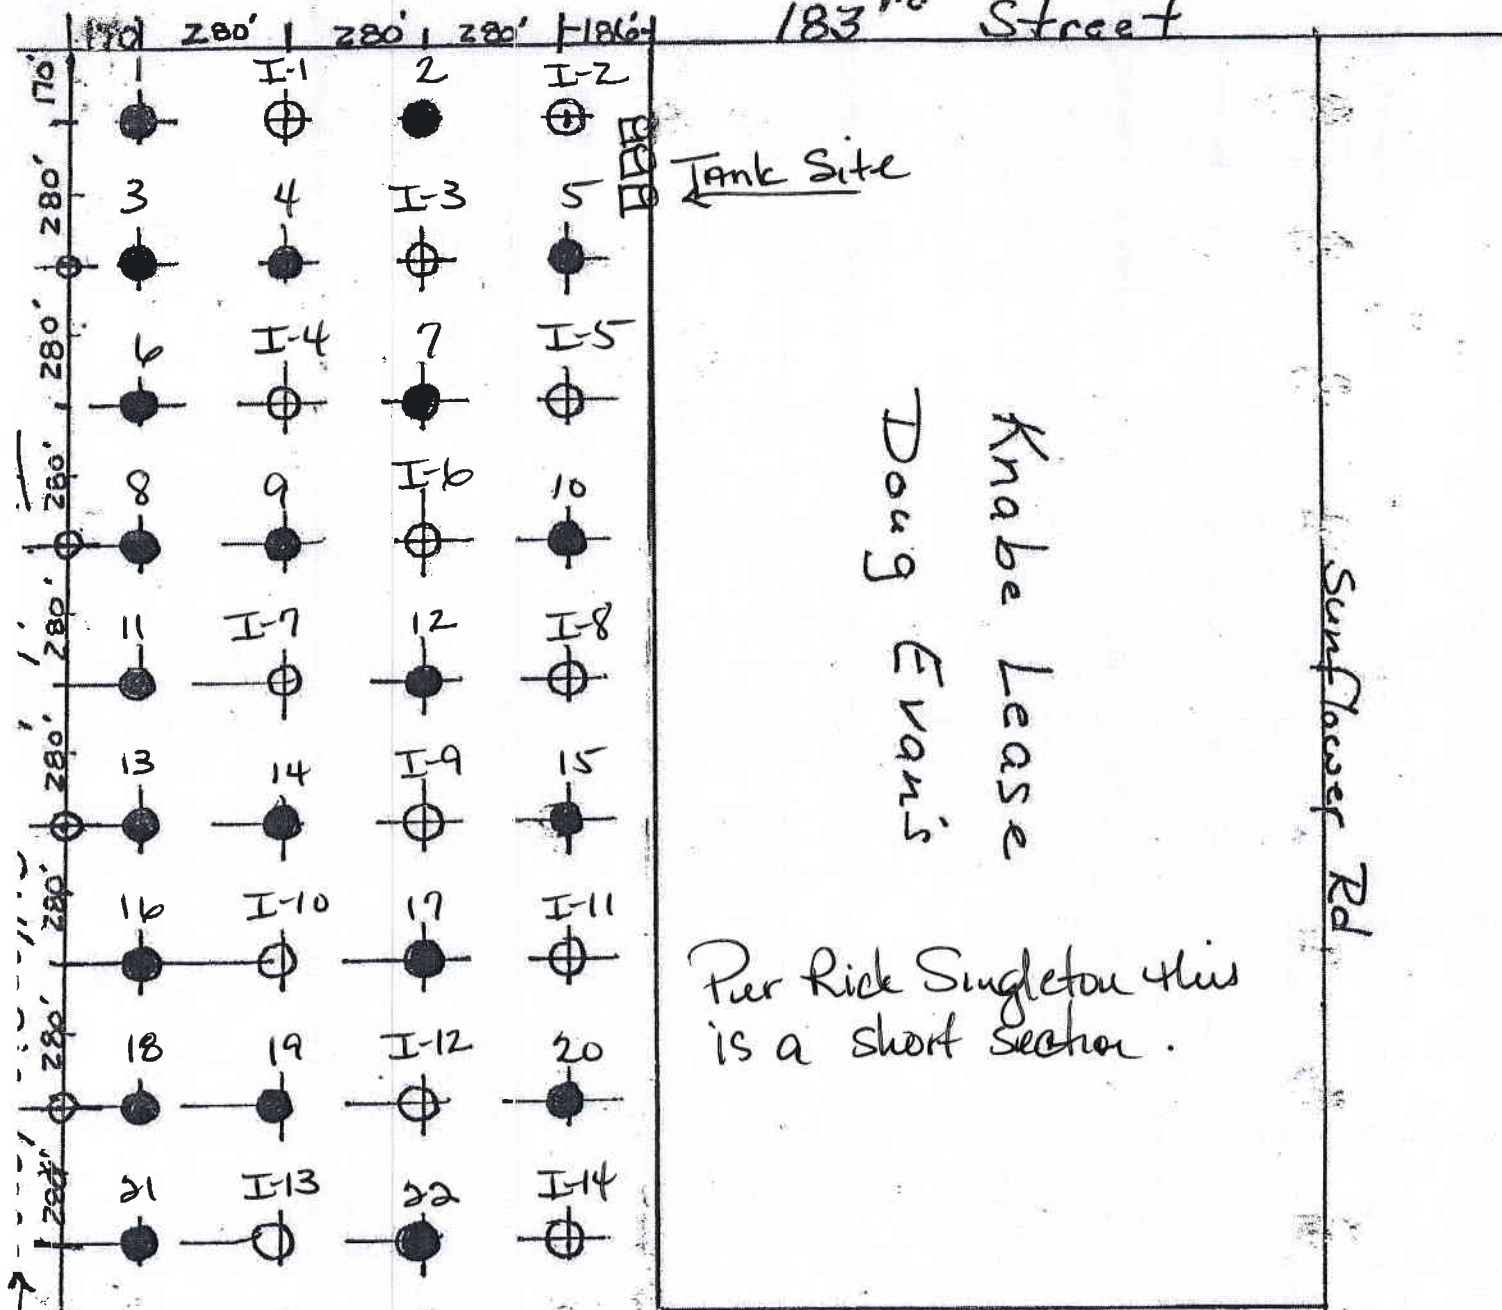 183rd Street
170' 280' 280' 280' 186'
170'
1 I-1 2 I-2
Tank Site
280'
3 4 I-3 5
280'
6 I-4 7 I-5
280'
8 9 I-6 10
280'
11 I-7 12 I-8
280'
13 14 I-9 15
280'
16 I-10 17 I-11
280'
18 19 I-12 20
280'
21 I-13 22 I-14
Knabe Lease
Doug Evan's
Sunflower Rd
Per Rick Singleton this
is a short section.